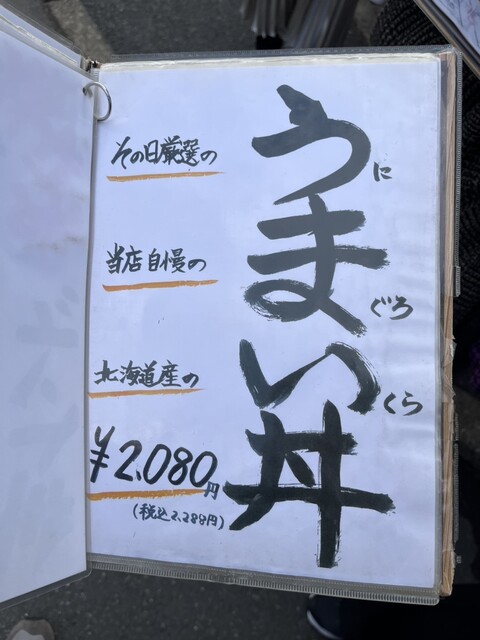 うまい丼
に
ぐろ
くら
その日厳選の
当店自慢の
北海道産の
¥2,080円
(税込2,288円)